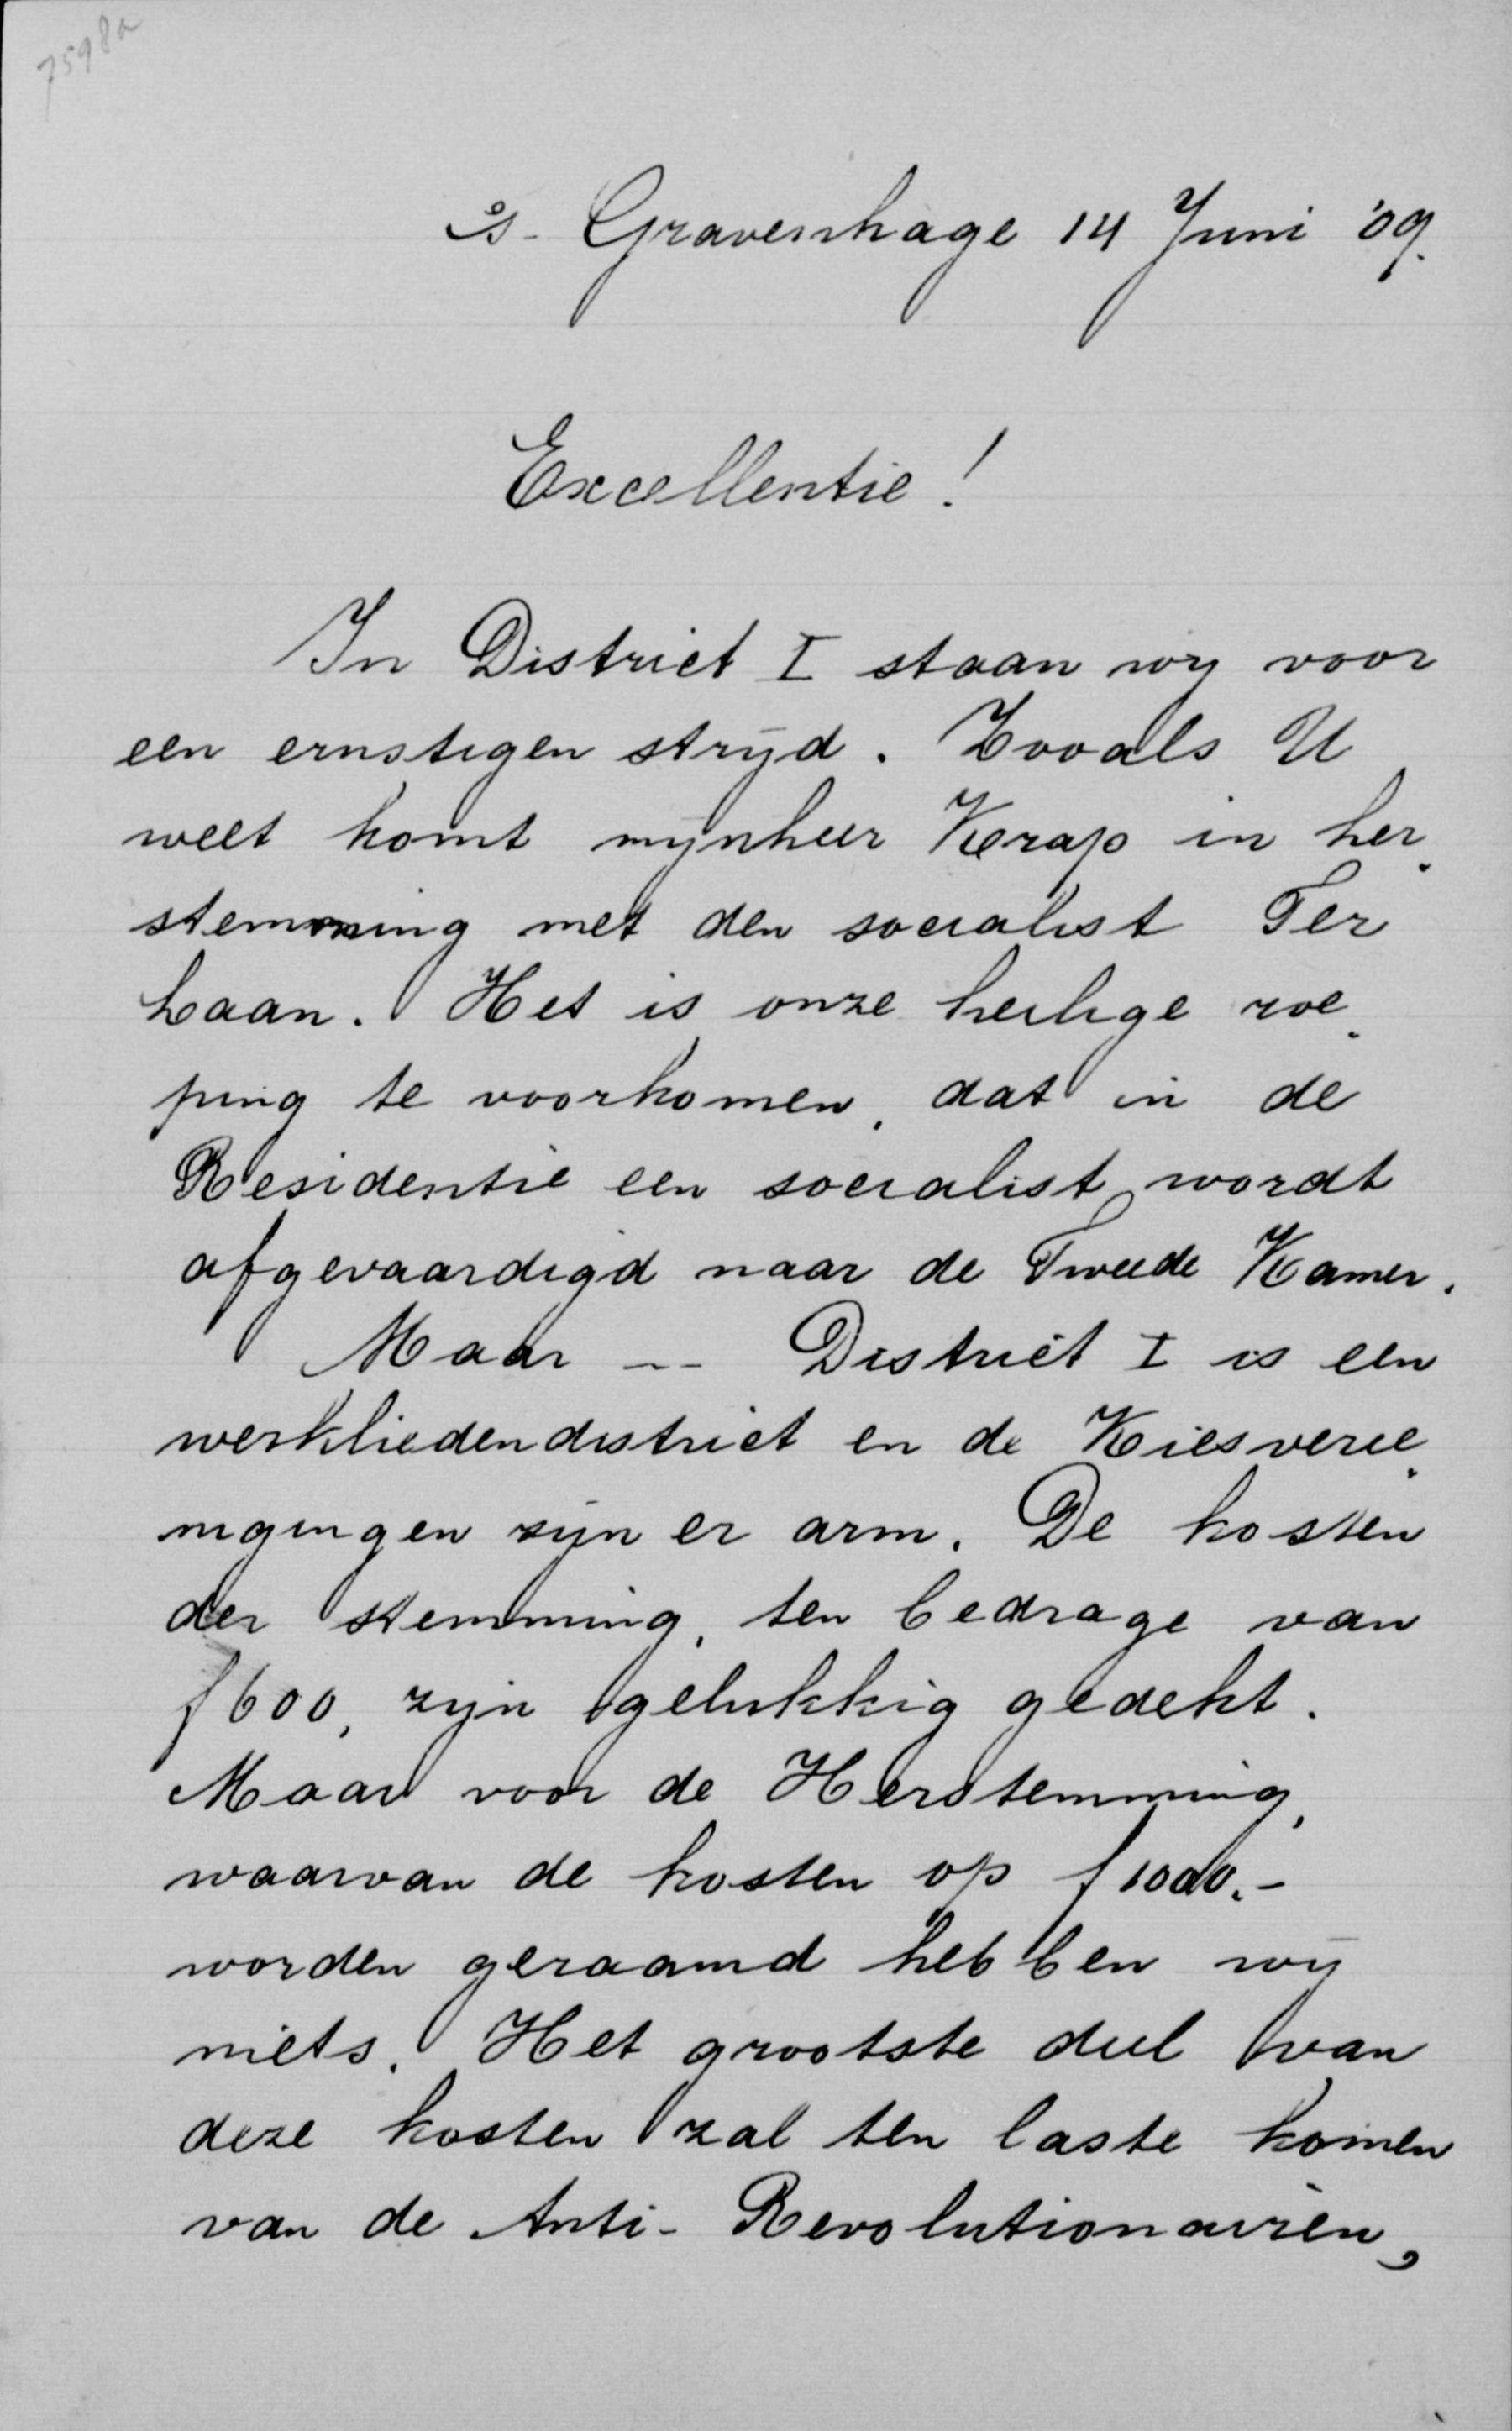 7598a
's-Gravenhage 14 Juni '09.
Excellentie!
In District I staan wij voor
een ernstigen strijd. Zooals U
weet komt mijnheer Krap in her-
stemming met den socialist Ter
Laan. Het is onze heilige roe-
ping te voorkomen, dat in de
Residentie een socialist wordt
afgevaardigd naar de Tweede Kamer.
Maar -- District I is een
werkliedendistrict en de Kiesveree-
nigingen zijn er arm. De kosten
der stemming, ten bedrage van
f 600, zijn gelukkig gedekt.
Maar voor de Herstemming,
waarvan de kosten op f 1000.-
worden geraamd hebben wij
niets. Het grootste deel van
deze kosten zal ten laste komen
van de Anti-Revolutionairen,